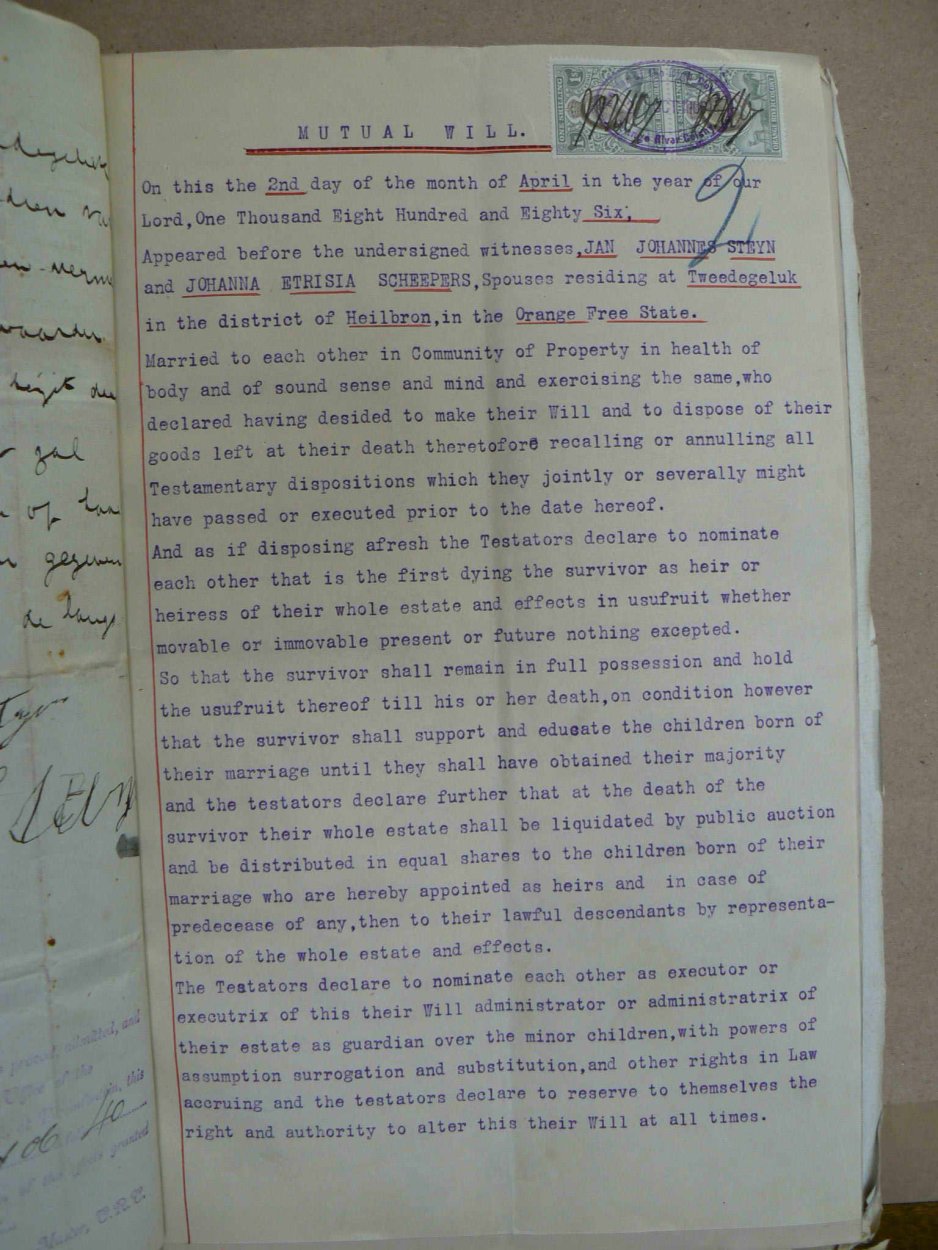 MUTUAL WILL.
2
On this the 2nd day of the month of April in the year of our
Lord,One Thousand Eight Hundred and Eighty Six;
Appeared before the undersigned witnesses,JAN JOHANNES STEYN
and JOHANNA ETRISIA SCHEEPERS,Spouses residing at Tweedegeluk
in the district of Heilbron,in the Orange Free State.
Married to each other in Community of Property in health of
body and of sound sense and mind and exercising the same,who
declared having desided to make their Will and to dispose of their
goods left at their death theretofore recalling or annulling all
Testamentary dispositions which they jointly or severally might
have passed or executed prior to the date hereof.
And as if disposing afresh the Testators declare to nominate
each other that is the first dying the survivor as heir or
heiress of their whole estate and effects in usufruit whether
movable or immovable present or future nothing excepted.
So that the survivor shall remain in full possession and hold
the usufruit thereof till his or her death,on condition however
that the survivor shall support and educate the children born of
their marriage until they shall have obtained their majority
and the testators declare further that at the death of the
survivor their whole estate shall be liquidated by public auction
and be distributed in equal shares to the children born of their
marriage who are hereby appointed as heirs and in case of
predecease of any,then to their lawful descendants by representa-
tion of the whole estate and effects.
The Testators declare to nominate each other as executor or
executrix of this their Will administrator or administratrix of
their estate as guardian over the minor children,with powers of
assumption surrogation and substitution,and other rights in Law
accruing and the testators declare to reserve to themselves the
right and authority to alter this their Will at all times.
zal
gegeven
admitted, and
of the
this
granted
Master, O.R.C.